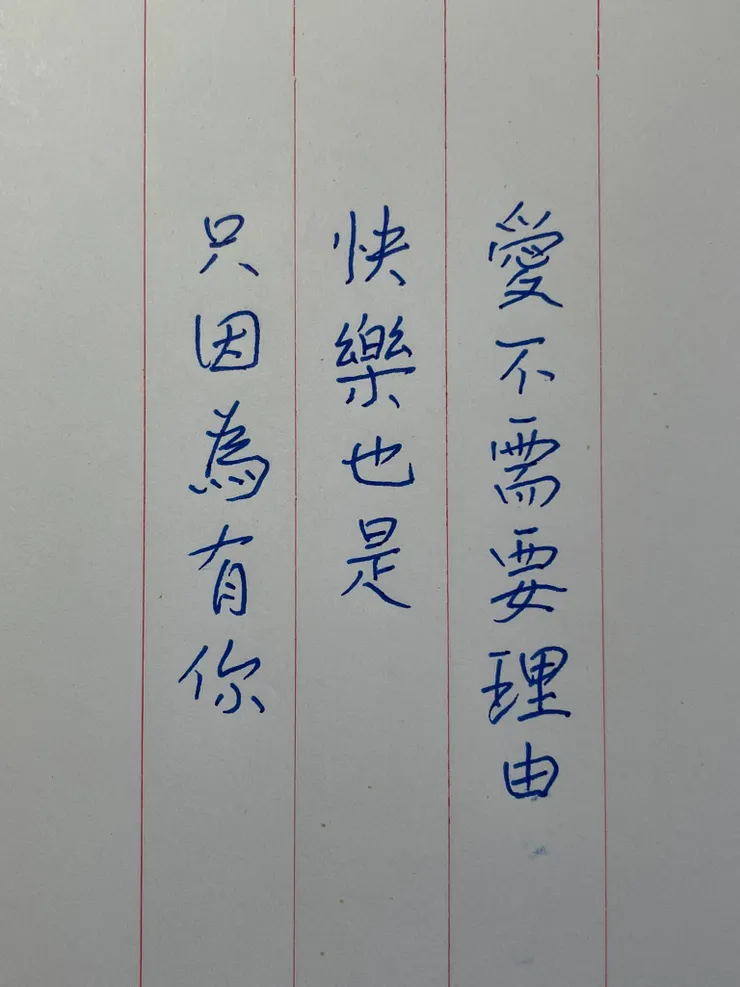 愛不需要理由
快樂也是
只因為有你